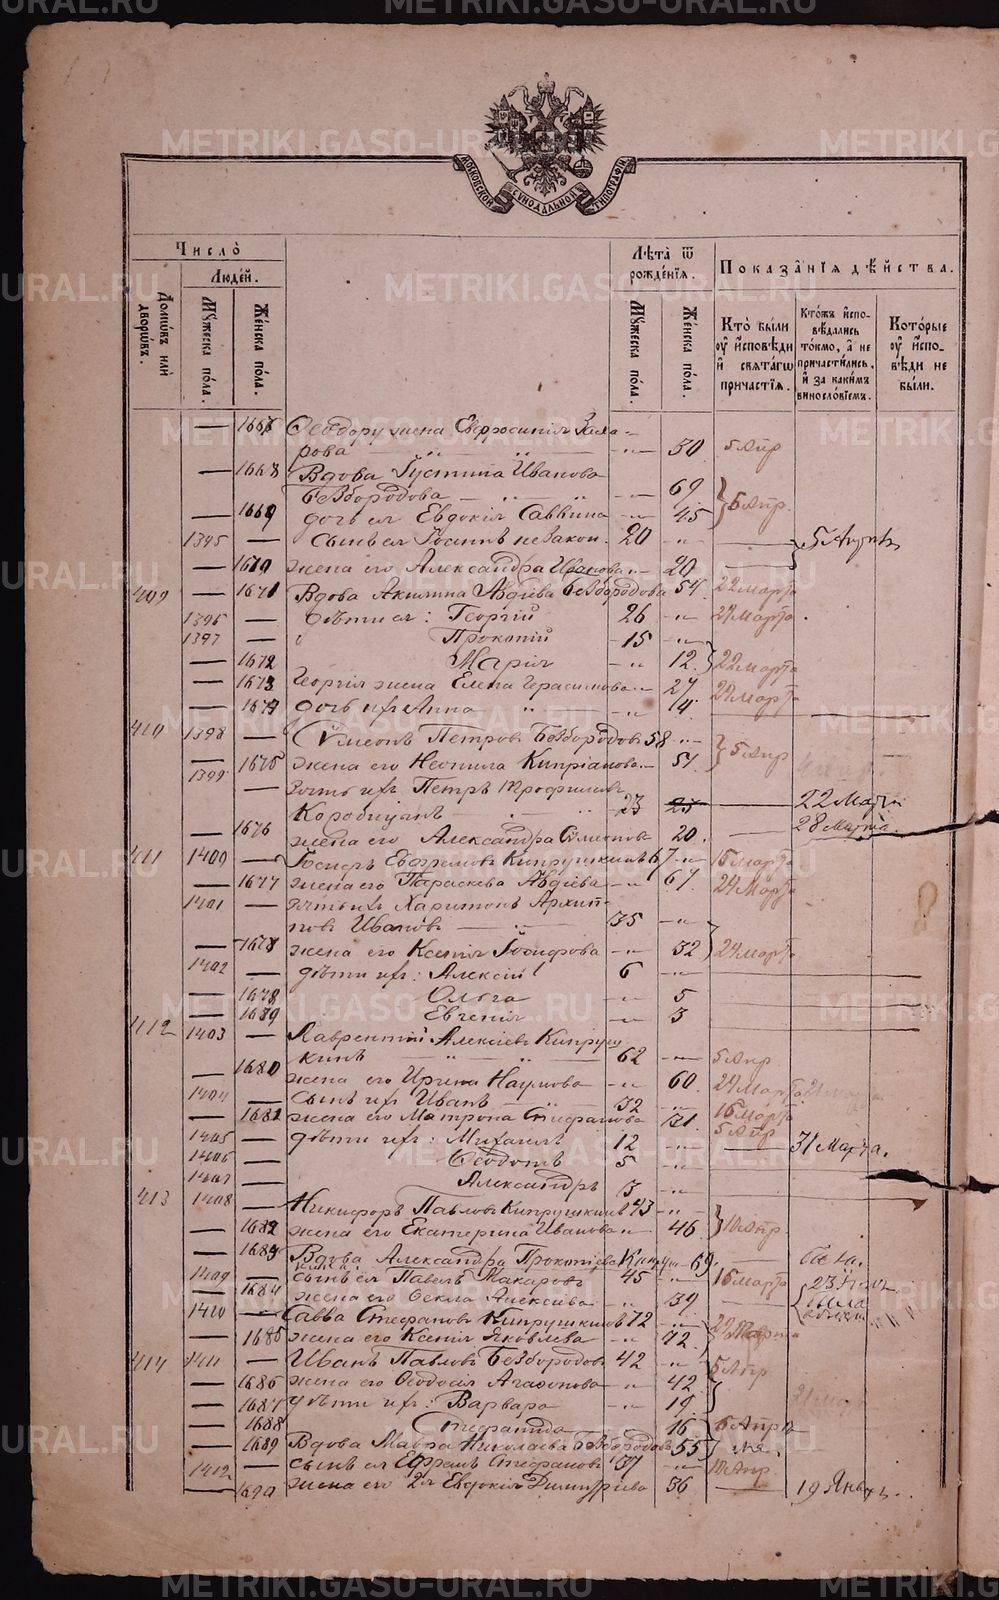 МОСКОВСКОЙ СУНОДАЛЬНОЙ ТИПОГРАФІИ
Число̀
Людéй.
Домѡвъ или дворѡвъ.
Мꙋжеска по́ла.
Же́нска по́ла.
Лѣ́та ѿ рожде́нїѧ.
Мꙋжеска по́ла.
Же́нска по́ла.
Показа́нїѧ дѣ́йства.
Кто̀ бы́ли ᲂу҆ и҆сповѣди и҆ свѧта́гѡ причастїѧ.
Кто́жъ и҆спо-вѣдались то́кмѡ, а҆ не причасти́лись, и҆ за каки́мъ винословїемъ.
Кото́рые ᲂу҆ и҆спо-вѣди не бы́ли.
— 1667 Ѳеодору жена Евфросинія Заха-
рова — " — " 50 5 Апр
— 1668 Вдова Іустина Иванова
Безбородова — " — 69
— 1669 дочь ея Евдокія Саввина — " 45 5 Апр.
1395 — сынъ ея Іоаннъ незакон. 20 "
— 1670 жена его Александра Иванова " 20
409 — 1671 Вдова Акилина Авдіева Безбородова 54 22 Марта
1396 — дѣти ея: Георгій 26 " 24 Марта
1397 — Прокопій 15 "
— 1672 Марія — " 12 22 Марта
— 1673 Георгія жена Елена Герасимова " 27 24 Марта
— 1674 дочь ихъ Анна " — "
410 1398 — Симеонъ Петровъ Безбородовъ 58 "
— 1675 жена его Неонила Кипріанова — 51 5 Апр
1399 — Зять ихъ Петръ Трофимовъ
23 22 Марта
28 Марта
— 1676 жена его Александра Симеонова 20.
411 1400 — Іосифъ Евфремовъ Кипрушкинъ 67 " 15 Марта
— 1677 жена его Параскева Авдіева — " 67 24 Марта
1401 — зять ихъ Харитонъ Архип-
повъ Ивановъ — 35 "
— жена его Ксенія Іосифова — " 32 24 Марта
1402 — дѣти ихъ: Алексій 6 "
— 1678 Ольга — " 5
— Евгенія — " 3
412 1403 — Лаврентій Алексіевъ Кипруш
кинъ — " — " 62 — " 5 Апр
— 1680 жена его Ирина Наумова — " 60. 24 Марта
1404 — сынъ ихъ Иванъ — 32 — " 16 Марта
жена его Матрона Стефанова 5 Апр
1405 — дѣти ихъ: Михаилъ 12 " 31 Марта.
1406 — Ѳеодотъ 5 "
1407 — Александръ 3 "
413 1408 — Никифоръ Павловъ Кипрушкинъ 43 "
— 1682 жена его Екатерина Иванова " 46 10 Апр
— 1683 Вдова Александра Прокопіева Кипруш 69
1409 — сынъ ея Павелъ Макаровъ 45 " 16 Марта
— 1684 жена его Ѳекла Алексіева " 39
1410 — Савва Стефановъ Кипрушкинъ 72 "
— 1685 жена его Ксенія Яковлева — " 72
414 1411 — Иванъ Павловъ Безбородовъ 42 — " 5 Апр
— 1686 жена его Ѳеодосія Агаѳонова — " 42
— 1687 дѣти ихъ: Варвара — " 19
— 1688 Стефанида — 16 6 Апрѣ
— 1689 Вдова Мавра Николаева Безбородова 55
1412 — сынъ ея Ефремъ Стефановъ 37 — " 10 Апр.
— 1690 жена его 2я Евдокія Димитріева 36 19 Январь.
METRIKI.GASO-URAL.RU